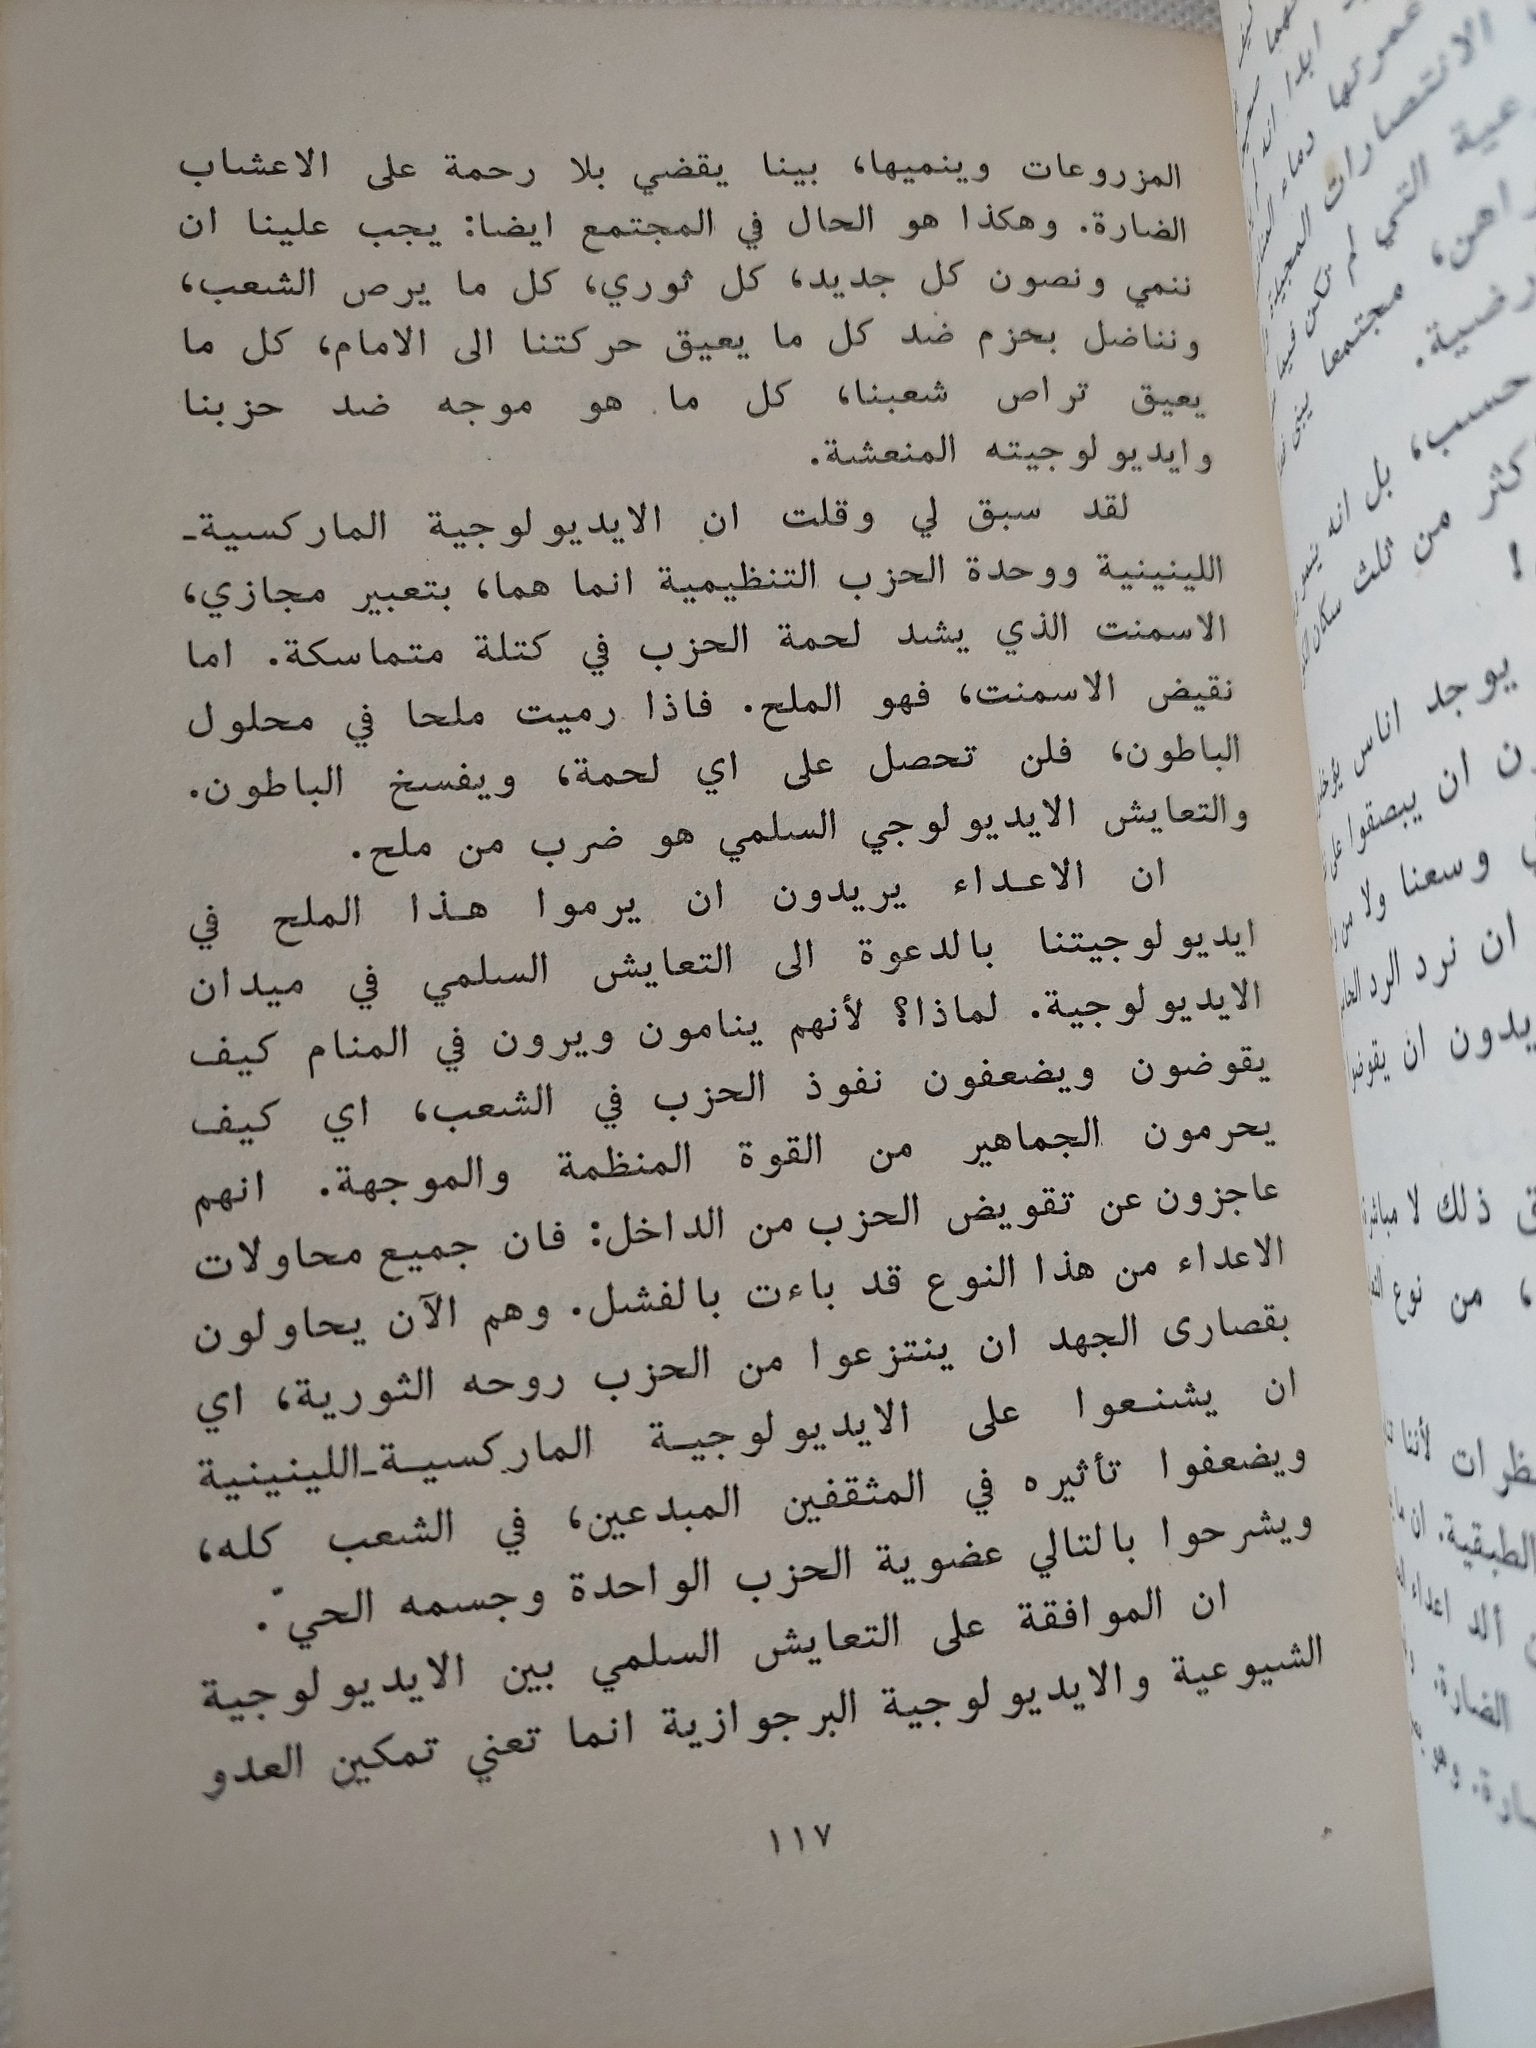 المزروعات وينميها، بينا يقضي بلا رحمة على الاعشاب
الضارة. وهكذا هو الحال في المجتمع ايضا: يجب علينا ان
ننمي ونصون كل جديد، كل ثوري، كل ما يرص الشعب،
ونناضل بحزم ضد كل ما يعيق حركتنا الى الامام، كل ما
يعيق تراص شعبنا، كل ما هو موجه ضد حزبنا
وايديولوجيته المنعشة.
لقد سبق لي وقلت ان الايديولوجية الماركسية-
اللينينية ووحدة الحزب التنظيمية انما هما، بتعبير مجازي،
الاسمنت الذي يشد لحمة الحزب في كتلة متماسكة. اما
نقيض الاسمنت، فهو الملح. فاذا رميت ملحا في محلول
الباطون، فلن تحصل على اي لحمة، ويفسخ الباطون.
والتعايش الايديولوجي السلمي هو ضرب من ملح.
ان الاعداء يريدون ان يرموا هذا الملح في
ايديولوجيتنا بالدعوة الى التعايش السلمي في ميدان
الايديولوجية. لماذا؟ لأنهم ينامون ويرون في المنام كيف
يقوضون ويضعفون نفوذ الحزب في الشعب، اي كيف
يحرمون الجماهير من القوة المنظمة والموجهة. انهم
عاجزون عن تقويض الحزب من الداخل: فان جميع محاولات
الاعداء من هذا النوع قد باءت بالفشل. وهم الآن يحاولون
بقصارى الجهد ان ينتزعوا من الحزب روحه الثورية، اي
ان يشنعوا على الايديولوجية الماركسية-اللينينية
ويضعفوا تأثيره في المثقفين المبدعين، في الشعب كله،
ويشرحوا بالتالي عضوية الحزب الواحدة وجسمه الحيّ.
ان الموافقة على التعايش السلمي بين الايديولوجية
الشيوعية والايديولوجية البرجوازية انما تعني تمكين العدو
١١٧
الانتصارات المجيدة
التي لم تكن
مجتمعا
حسب، بل انه
كثر من ثلث سكان
!
يوجد اناس
ان يبصقوا على
وسعنا ولا من
ان نرد الرد
يدون ان يقوضوا
ذلك لا مباشرة
، من نوع
لأننا
الطبقية. ان
ألد اعداء
الضارة.